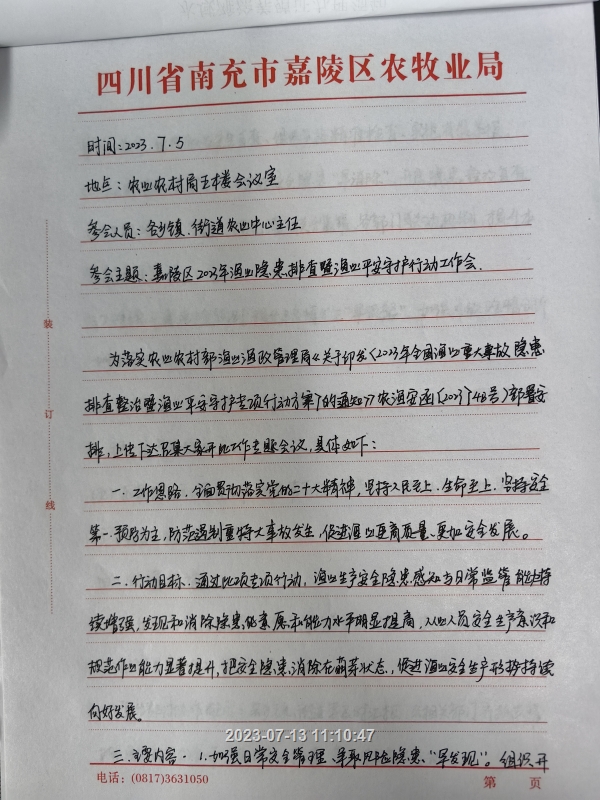 四川省南充市嘉陵区农牧业局
时间:2023.7.5
地点:农业农村局五楼会议室
参会人员:各乡镇、街道农业中心主任
参会主题:嘉陵区2023年渔业隐患排查暨渔业平安守护行动工作会.
为落实农业农村部渔业渔政管理局《关于印发〈2023年全国渔业重大事故隐患
排查整治暨渔业平安守护专项行动方案〉的通知》农渔安函〔2023〕48号)部署安
排,上传下达召集大家开此工作专题会议,具体如下:
一、工作思路.全面贯彻落实党的二十大精神,坚持人民至上.生命至上.坚持安全
第一.预防为主,防范遏制重特大事故发生,促进渔业更高质量、更加安全发展。
二、行动目标.通过此项专项行动,渔业生产安全隐患感知与日常监管能力持
续增强,发现和消除隐患意愿和能力水平明显提高,从业人员安全生产意识和
规范作业能力显著提升,把安全隐患消除在萌芽状态,促进渔业安全生产形势持续
向好发展。
三.主要内容.1.加强日常安全管理、争取风险隐患“早发现”。组织开
装
订
线
2023-07-13 11:10:47
电话:(0817)3631050
第 页